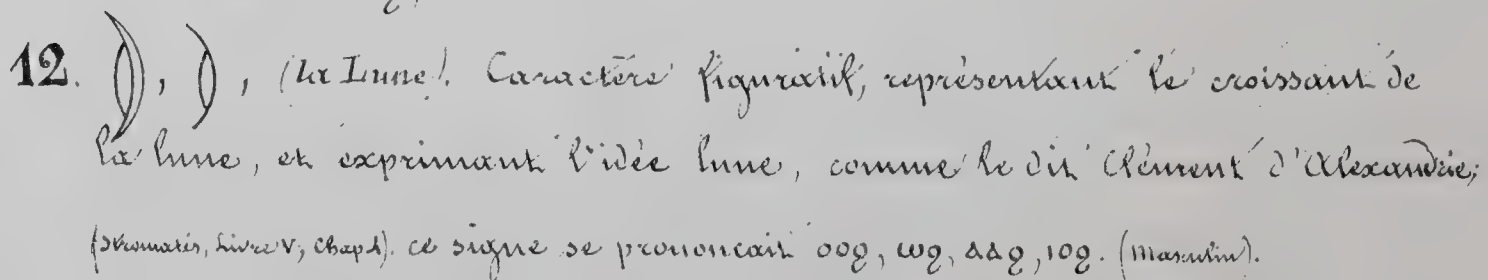 12. ☽, ☽, (la Lune). Caractère figuratif, représentant le croissant de
la lune, et exprimant l'idée lune, comme le dit Clément d'Alexandrie;
(Stromatés, Livre V, Chap 4). ce signe se prononcait ⲟⲟϩ, ⲱϩ, ⲁⲁϩ, ⲓⲟϩ. (Masculin).